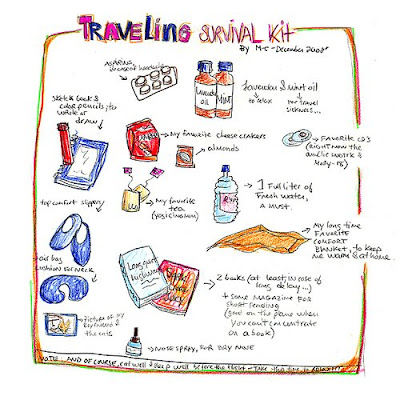 TRAVELING SURVIVAL KIT
By M-C - December 2008
ASPIRINS,
in case of headache
Lavender
oil
MINT
Lavender & Mint oil
to relax
for travel
sickness...
Sketch book &
color pencils, to
write or
draw
My favorite cheese crakers
almonds
FAVORITE CD's
(Right now the
amélie movie &
Moby - 18)
My favorite
tea
(yogi, ginger)
1 Full liter of
Fresh water,
a must.
top comfort slippers
My long time
FAVORITE
COMFORT
BLANKET, to keep
me warm & at home.
air bag
cushion for neck
2 books (at least, in case of
long delay...)
+ some MAGAZINE FOR
short reading
(good on the plane when
you can't concentrate
on a book)
PICTURE OF my
boyfriend &
the cats
NOSE SPRAY, FOR DRY NOSE
NOTE: AND OF COURSE, eat well & sleep well before the ticket - Take this time to